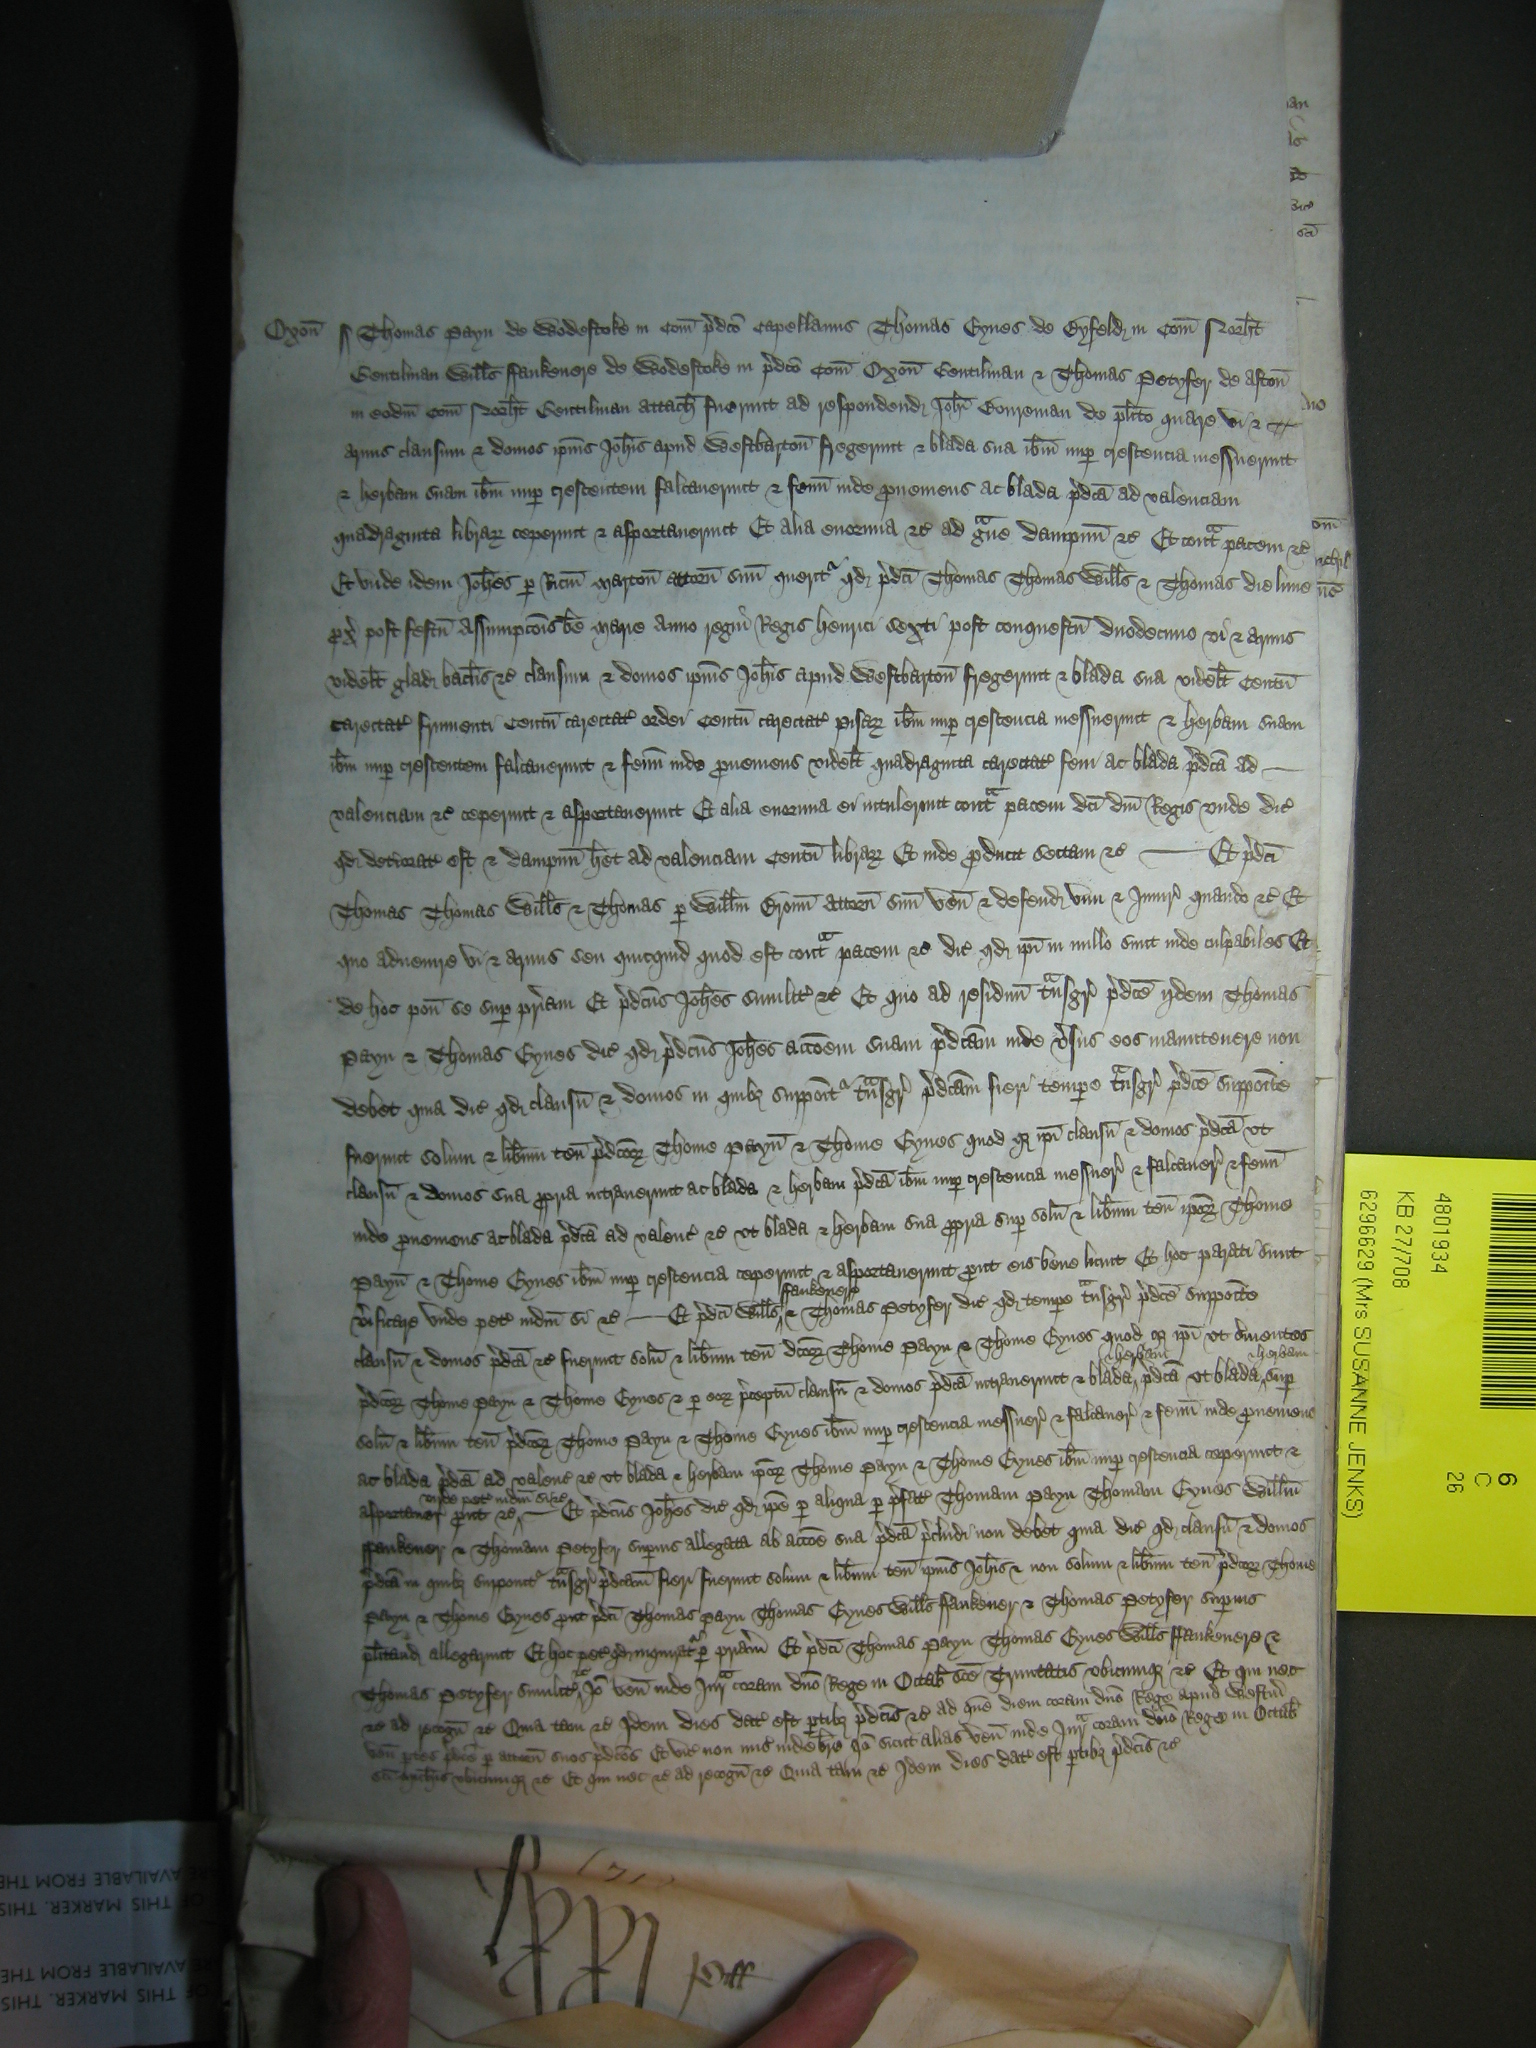 Oxoñ ſſ Thomas Payn de Wodestoke in Com̄ p̄dco Capellanus Thomas Eynes de Eyfeld in Com̄ Norht
Gentilman Wills ffaukenere de Wodestoke in p̄dco Com̄ Oxoñ Gentilman & Thomas Petyfer de Astoñ
in eodm̄ Com̄ Norht Gentilman attach fuerunt ad respondend Johi Coureman de plito quare vi &
armis clausum & domos ip̄ius Johis apud Westbartoñ fregerunt & blada sua ibm̄ nup crescencia messuerunt
& herbam suam ibm̄ nup crescentem falcauerunt & fenū inde proueniens ac blada p̄dca ad valenciam
quadraginta librar ceperunt & asportauerunt Et alia enormia &c ad graue dampnū &c Et contra pacem &c
Et vnde idem Johes p Ricm̄ Martoñ attorn̄ suū querit qd p̄dci Thomas Thomas Wills & Thomas die lune
prox post festū Assumpcois be Marie anno regni Regis Henrici Sexti post conquestū duodecimo vi & armis
videlt glad baclis &c clausum & domos ip̄ius Johis apud Westbartoñ fregerunt & blada sua videlt Centū
carectat frumenti Centū carectat ordei Centū carectat pisar ibm̄ nup crescencia messuerunt & herbam suam
ibm̄ nup crescentem falcauerunt & fenū inde proueniens videlt quadraginta carectat feni ac blada p̄dca ad
valenciam &c ceperunt & asportauerunt Et alia enormia ei intulerunt contra pacem dci dn̄i Regis vnde dic
qd deteriorat est & dampnū het ad valenciam Centū librar Et inde producit sectam &c Et p̄dci
Thomas Thomas Wills & Thomas p Willm Crom attorn̄ suū veñ & defend vim & iniur quando &c Et
quo ad venire vi & armis seu quicquid quod est contra pacem &c dic qd ip̄i in nullo sunt inde culpabiles Et
de hoc poñ se sup pr̄iam Et p̄dcus Johes similit &c Et quo ad residuū transgr p̄dce ijdem Thomas
Payn & Thomas Eynes dic qd p̄dcus Johes accoem suam p̄dcam inde v̄sus eos manutenere non
debet quia dic qd clausū & domos in quibz supponit transgr p̄dcam fieri tempe transgr p̄dce supposite
fuerunt solum & libm̄ teñ p̄dcor Thome Payn & Thome Eynes quod qr ip̄i clausū & domos p̄dca vt
clausū & domos sua propria intrauerunt ac blada & herbam p̄dca ibm̄ nup crescencia messuer & falcauer & fenū
inde proueniens ac blada p̄dca ad valenc &c vt blada & herbam sua propria sup solū & libm̄ teñ ip̄or Thome
Payn & Thome Eynes ibm̄ nup crescencia ceperunt & asportauerunt prout eis bene licuit Et hoc parati sunt
v̄ificare vnde pet iudm̄ si &c Et p̄dci Wills ffaukenere & Thomas Petyfer dic qd tempe transgr p̄dce supposite
clausū & domos p̄dca &c fuerunt solū & libm̄ teñ dcor Thome Payn & Thome Eynes quod qr ip̄i vt s̄uientes
p̄dcor Thome Payn & Thome Eynes & p eor p̄ceptū clausū & domos p̄dca intrauerunt & blada & herbam p̄dca vt blada & herbam sup
solū & libm̄ teñ p̄dcor Thome Payn & Thome Eynes ibm̄ nup crescencia messuer & falcauer & fenū inde proueniens
ac blada p̄dca ad valenc &c vt blada & herbam ip̄or Thome Payn & Thome Eynes ibm̄ nup crescencia ceperunt &
asportauer prout &c vnde pet iudm̄ si &c Et p̄dcus Johes dic qd ip̄e p aliqua p p̄fat Thomam Payn Thomam Eynes Willm
ffaukener & Thomam Petyfer supius allegata ab accoe sua p̄dca p̄cludi non debet quia dic qd clausū & domos
p̄dca in quibz supponit transgr p̄dcam fieri fuerunt solum & libm̄ teñ ip̄ius Johis & non solum & libm̄ teñ p̄dcor Thome
Payn & Thome Eynes prout p̄dci Thomas Payn Thomas Eynes Wills ffaukener & Thomas Petyfer supius
plitand allegarunt Et hoc pet qd inquirat p pr̄iam Et p̄dci Thomas Payn Thomas Eynes Wills ffaukenere &
Thomas Petyfer similit &c Io veñ inde Iur coram dn̄o Rege in Octab sce Trinitatis vbicumqz &c Et qui nec
&c ad recogn̄ &c Quia tam &c Idem dies dat est ptibz p̄dcis &c ad quē diem coram dn̄o Rege apud Westm̄
veñ ptes p̄dce p attorn̄ suos p̄dcos Et vic non mis inde bre Io sicut alias veñ inde Iur coram dn̄o Rege in Octab
sci Michis vbicumqz &c Et qui nec &c ad recogn̄ &c Quia tam &c Idem dies dat est ptibz p̄dcis &c
6
C
26
4801934
KB 27/708
6296629 (Mrs SUSANNE JENKS)
OF THIS MARKER. THIS
ARE AVAILABLE FROM THE
OF THIS MARKER. THIS
ARE AVAILABLE FROM THE